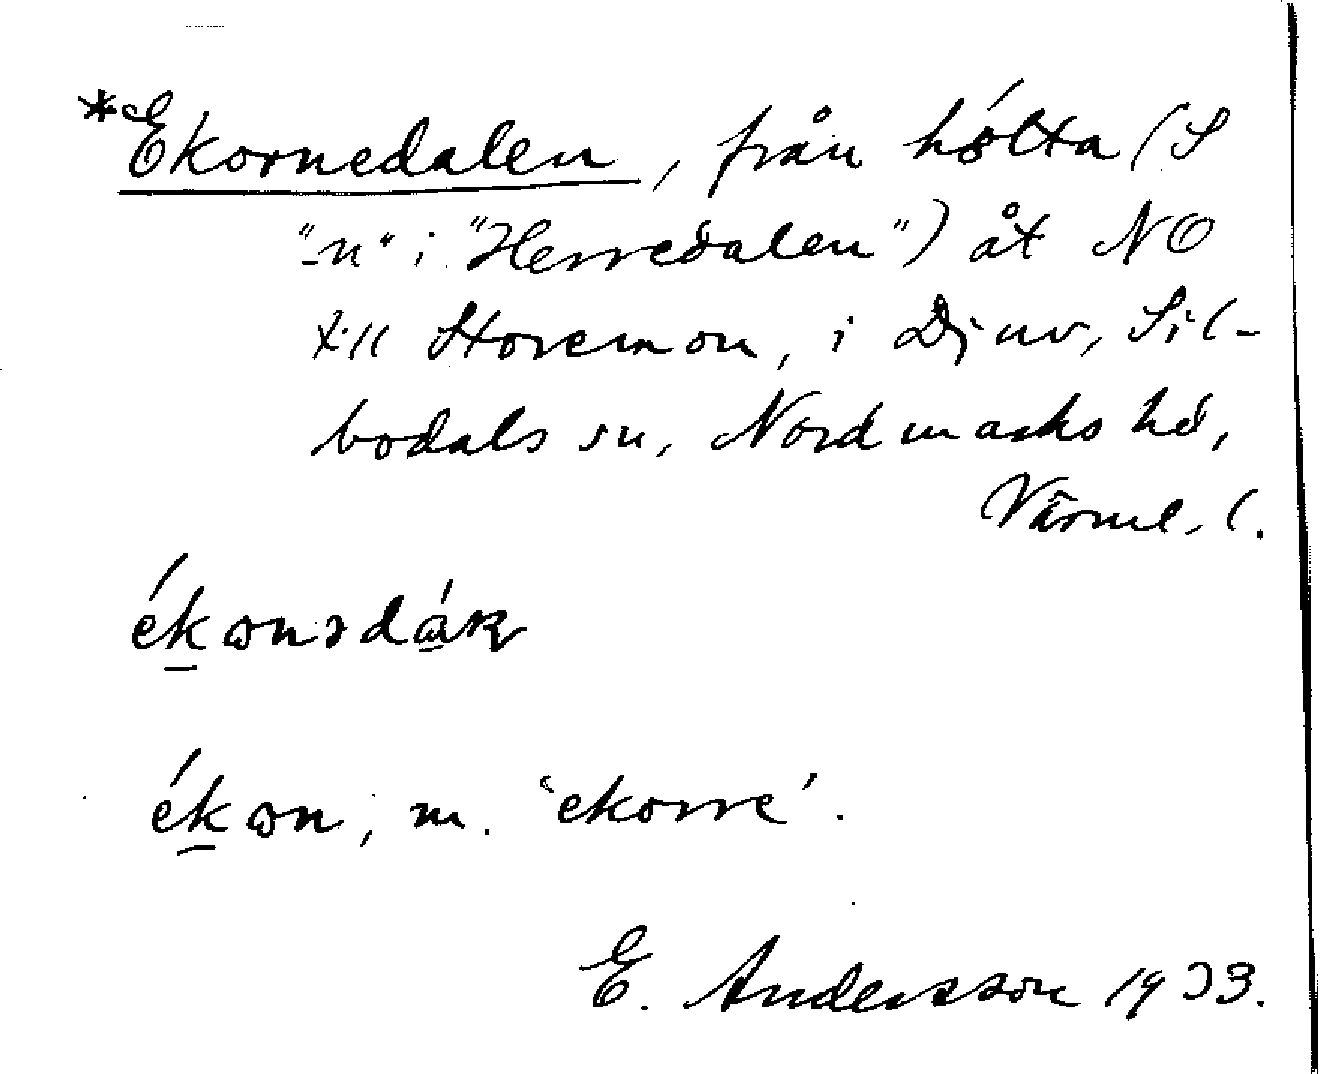 *Ekornedalen, från hólta (S
"-n" i "Herredalen") åt NO
till Storemon, i Djuv, Sil-
bodals sn, Nordmarks hd,
Värml.
ékon, m. 'ekorre'.
E. Andersson 1933.